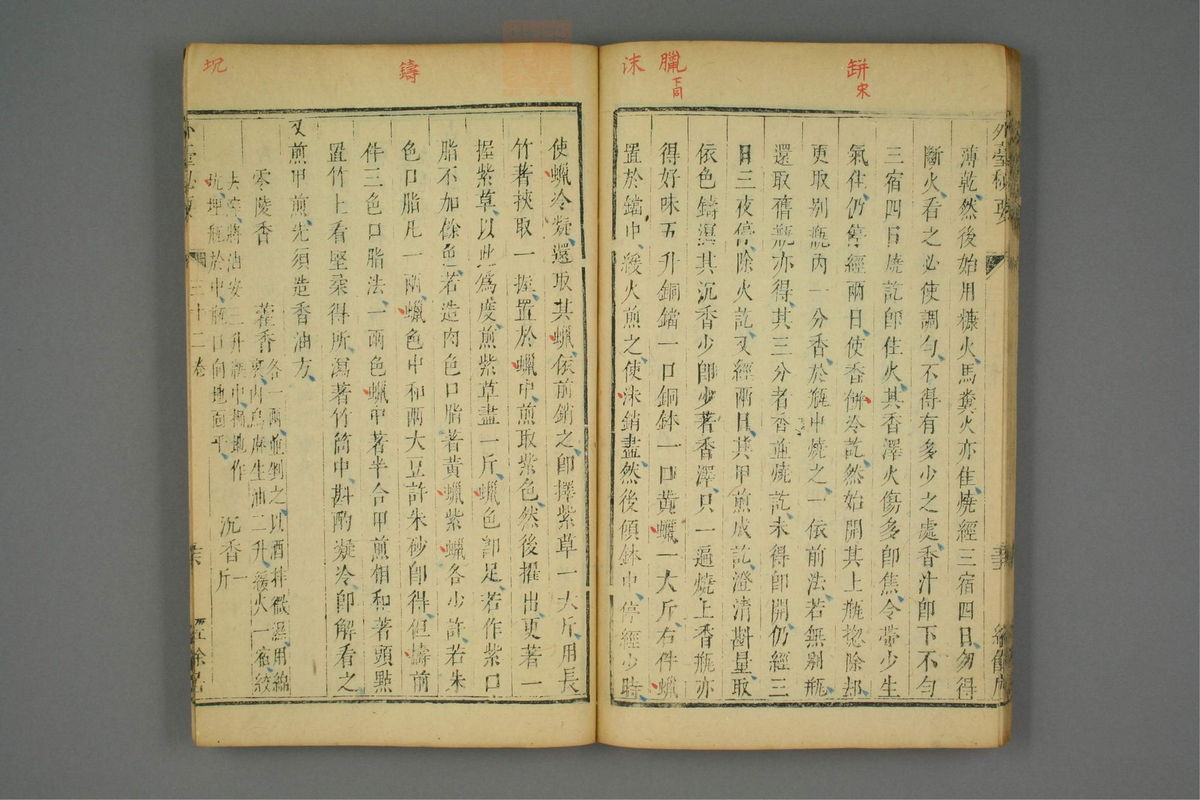 缾宋
臘下同
沫
外臺秘要
薄乾然後始用糠火馬糞火亦佳燒經三宿四日勿得
斷火看之必使調勻不得有多少之處香汁即下不勻
三宿四日燒訖即住火其香澤火傷多即焦令帶少生
氣住仍停經兩日使香餅冷訖然始開其上瓶揔除却
更取别瓶内一分香於瓶中燒之一依前法若無别瓶
還取舊瓶亦得其三分者香並燒訖未得即開仍經三
日三夜停除火訖又經兩日其甲煎成訖澄清斟量取
依色鑄瀉其沉香少即少著香澤只一遍燒上香瓶亦
得好味五升銅鐺一口銅鉢一口黄蠟一大斤右件蠟
置於鐺中緩火煎之使沫銷盡然後傾鉢中停經少時
鑄
坭
使蠟冷凝還取其蠟依前銷之即擇紫草一大斤用長
竹著挾取一握置於蠟中煎取紫色然後擢出更著一
握紫草以此爲度煎紫草盡一斤蠟色即足若作紫口
脂不加餘色若造肉色口脂著黄蠟紫蠟各少許若朱
色口脂凡一兩蠟色中和兩大豆許朱砂即得但鑄前
件三色口脂法一兩色蠟中著半合甲煎相和著頭點
置竹上看堅柔得所瀉著竹筒中斟酌凝冷即解看之
又煎甲煎先須造香油方
零陵香 藿香各一兩並剉之以酒拌微濕用綿
裹内烏麻生油二升緩火一宿絞
沉香一斤
去滓將油安三升瓶中掘地作
坑埋瓶於中瓶口向地面平
三十二卷